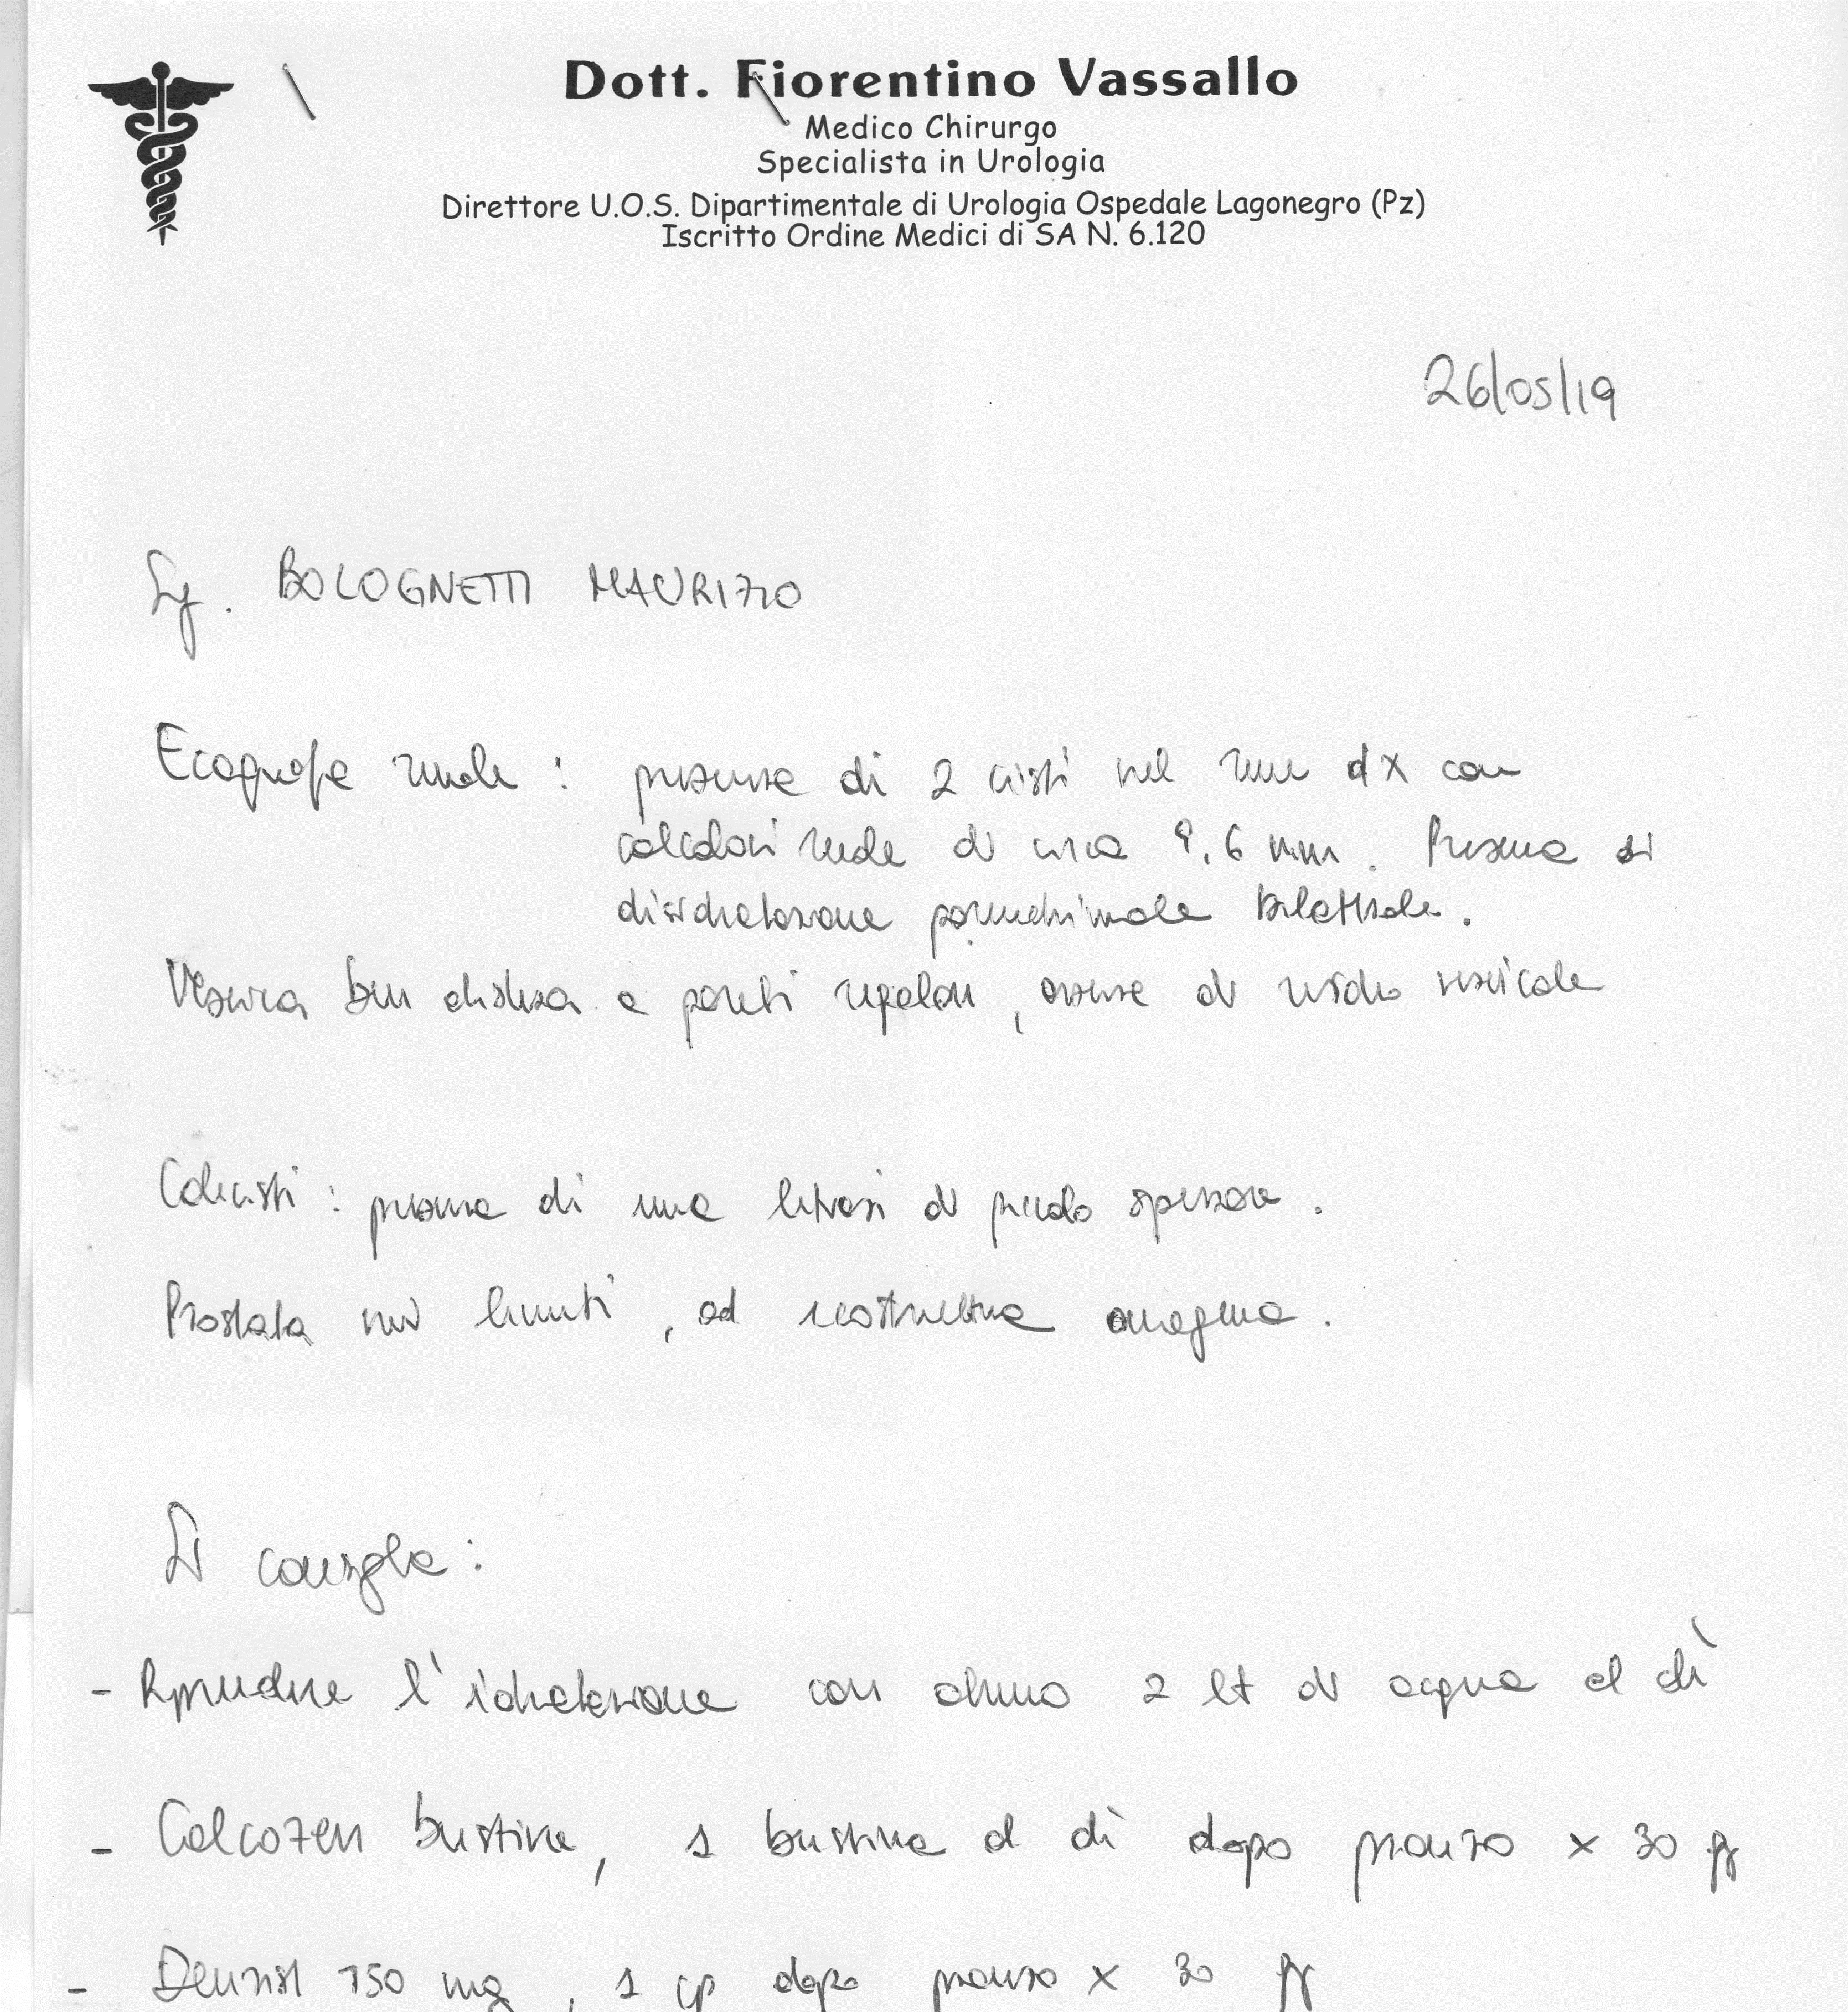 Dott. Fiorentino Vassallo
Medico Chirurgo
Specialista in Urologia
Direttore U.O.S. Dipartimentale di Urologia Ospedale Lagonegro (Pz)
Iscritto Ordine Medici di SA N. 6.120
26/05/19
Sig. BOLOGNETTI MAURIZIO
Ecografia renale : presenza di 2 cisti nel rene dx con
calcolosi renale di circa 9,6 mm. Presenza di
disidratazione parenchimale bilaterale.
Vescica ben distesa a pareti regolari, assenza di residuo vescicale
Colecisti : presenza di una litiasi di piccolo spessore.
Prostata nei limiti, ad ecostruttura omogenea.
Si consiglia :
- Riprendere l'idratazione con almeno 2 lt di acqua al dì
- Calcozen bustine, 1 bustina al dì dopo pranzo x 30 gg
- 150 mg, 1 cp dopo pranzo x 30 gg